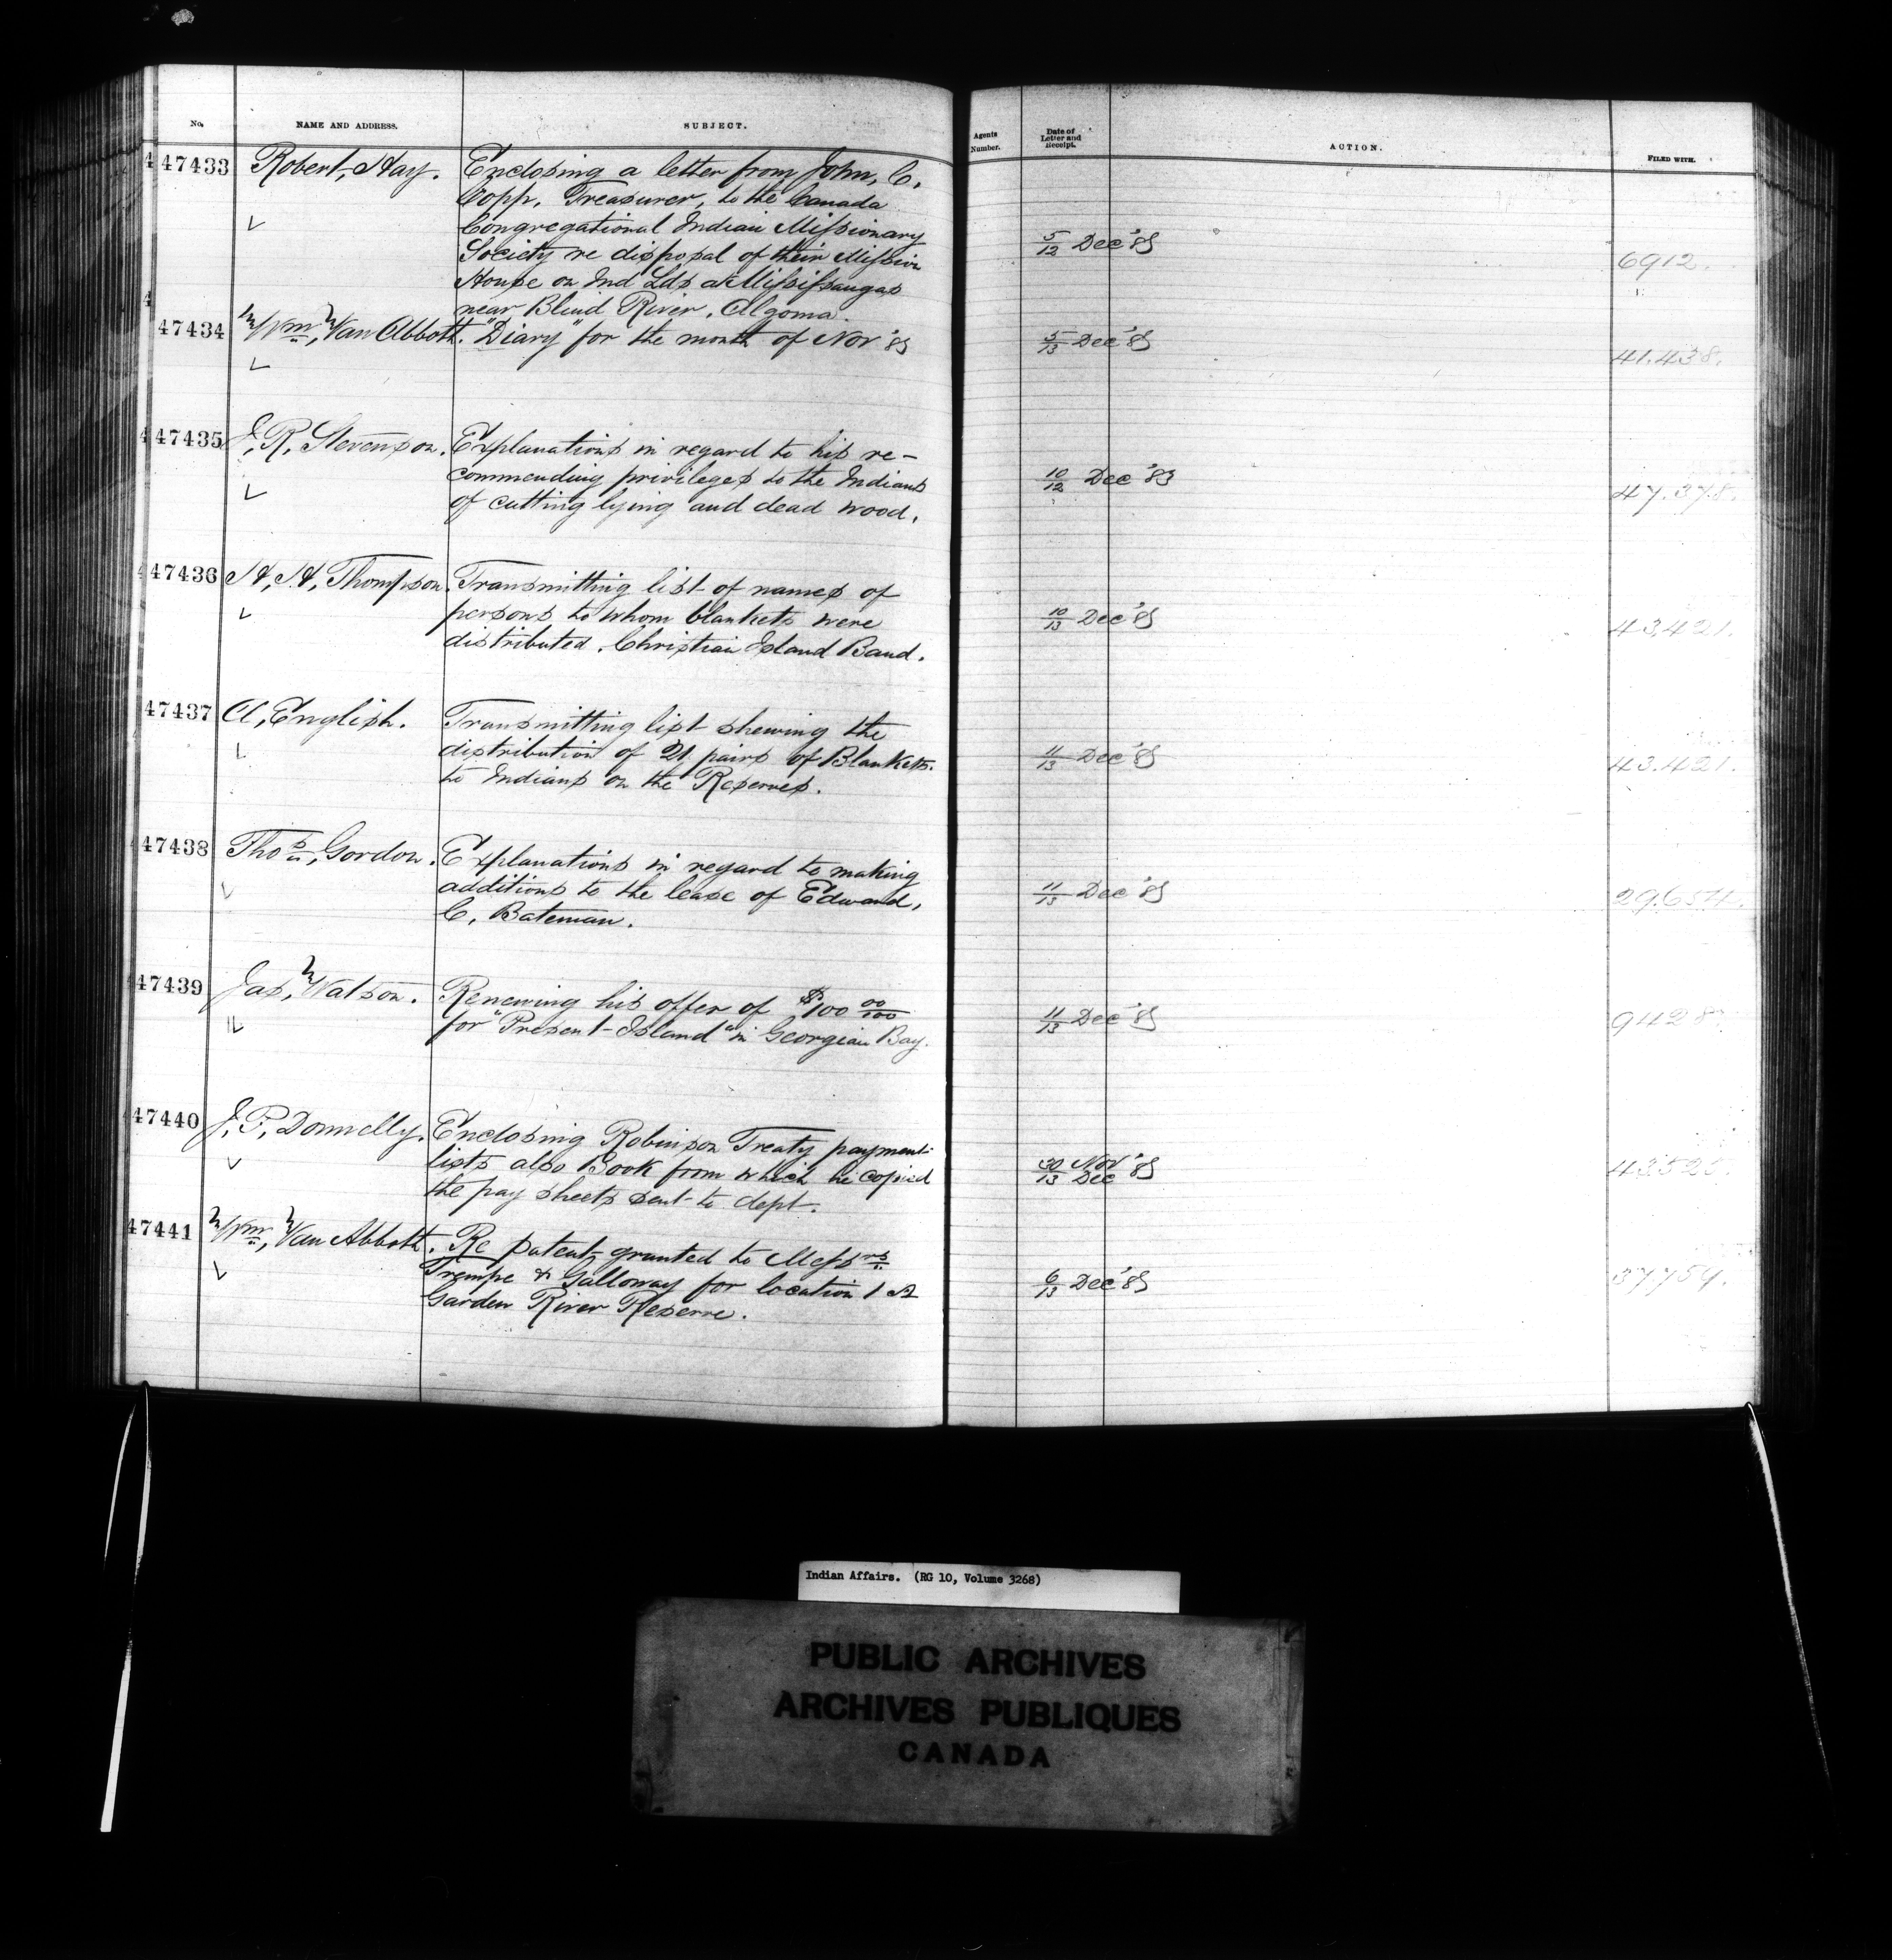 No. NAME AND ADDRESS. SUBJECT. Agents Number. Date of Letter and Receipt. ACTION. FILED WITH.
47433 Robert, Hay. Enclosing a letter from John, C.
Copp, Treasurer, to the Canada
Congregational Indian Missionary
Society re disposal of their Mission 5/12 Dec '85 6912.
House on Ind Lds at Mississaugas
near Blind River, Algoma.
47434 Wm, Van Abbott. "Diary" for the month of Nov '85 5/13 Dec '85 41.438.
47435 J, R, Stevenson. Explanations in regard to his re-
commending privileges to the Indians 10/12 Dec '85 47.378.
of cutting lying and dead wood.
47436 H, H, Thompson. Transmitting list of names of
persons to whom blankets were 10/13 Dec '85 43,421.
distributed. Christian Island Band.
47437 A, English. Transmitting list shewing the
distribution of 21 pairs of Blankets. 11/13 Dec '85 43.421.
to Indians on the Reserves.
47438 Thos, Gordon. Explanations in regard to making
additions to the lease of Edward, 11/13 Dec '85 29.654.
C, Bateman.
47439 Jas, Watson. Renewing his offer of $100 00/100
for "Present Island" in Georgian Bay. 11/13 Dec '85 9428
47440 J, P, Donnelly. Enclosing Robinson Treaty payment
lists also Book from which he copied 30/13 Nov/Dec '85
the pay sheets sent to dept.
47441 Wm, Van Abbott. Re patent granted to Messrs
Trempe & Galloway for location 1 A 6/13 Dec '85 37,759.
Garden River Reserve.
Indian Affairs. (RG 10, Volume 3268)
PUBLIC ARCHIVES
ARCHIVES PUBLIQUES
CANADA